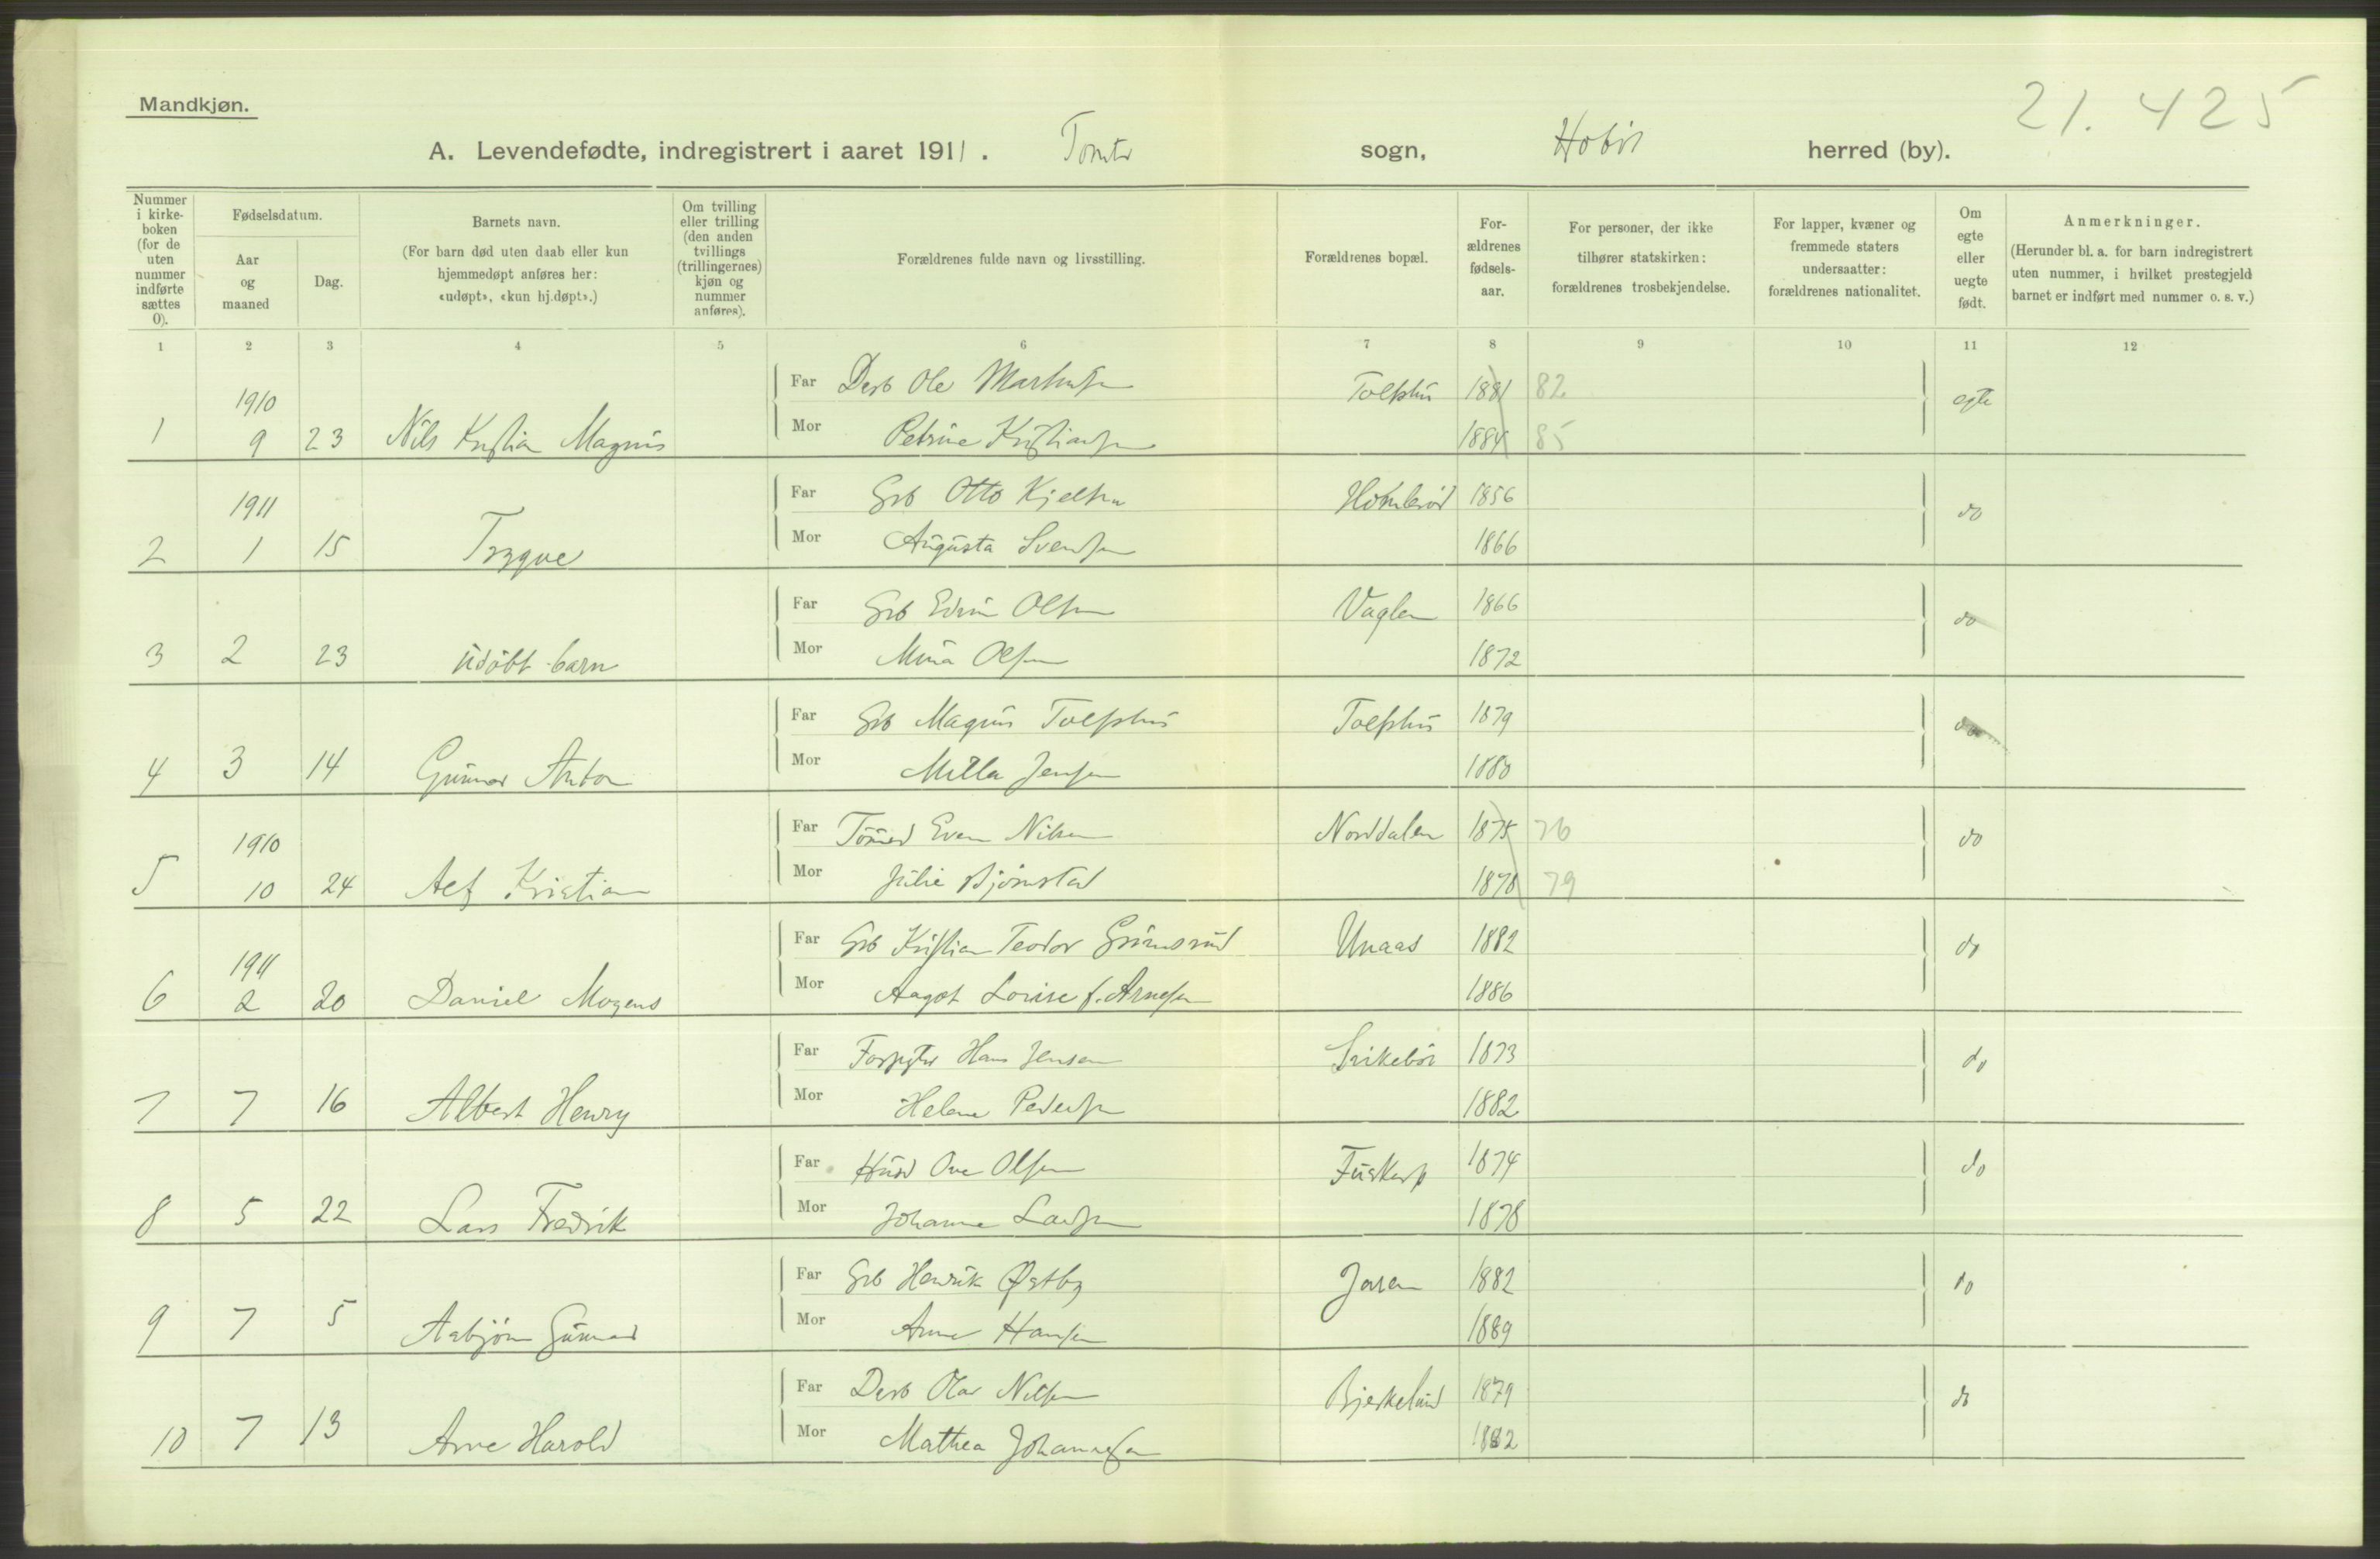 Mandkjøn.
21. 425
A. Levendefødte, indregistrert i aaret 1911. Tomter sogn, Hobøl herred (by).
Nummer i kirke-boken (for de uten nummer indførte sættes 0).
Fødselsdatum.
Aar og maaned
Dag.
Barnets navn.
(For barn død uten daab eller kun hjemmedøpt anføres her: «udøpt», «kun hj.døpt».)
Om tvilling eller trilling (den anden tvillings (trillingernes) kjøn og nummer anføres).
Forældrenes fulde navn og livsstilling.
Forældrenes bopæl.
For-ældrenes fødsels-aar.
For personer, der ikke tilhører statskirken: forældrenes trosbekjendelse.
For lapper, kvæner og fremmede staters undersaatter: forældrenes nationalitet.
Om egte eller uegte født.
Anmerkninger.
(Herunder bl. a. for barn indregistrert uten nummer, i hvilket prestegjeld barnet er indført med nummer o. s. v.)
1 2 3 4 5 6 7 8 9 10 11 12
Far Ole 1881 82 egte
1910
1 9 23 Nils Kristian Magnus
Mor Petrine Kristiansen 1884 85
Far Grb Otto Kjelsen 1856 do
1911
2 1 15 Trygve
Mor Augusta Svendsen 1866
Far Grb Edvin Olsen Vaglen 1866 do
3 2 23 udöbt barn
Mor Mina Olsen 1872
Far Grb Magnus Tolfshus Tolfshus 1879 do
4 3 14 Gunnar Anton
Mor Milla Jensen 1880
Far Even Nilsen Norddalen 1875 76 do
1910
5 10 24 Alf Kristian
Mor Julie Bjørnstad 1878 79
Far Grb Kristian Teodor Grimsrud Unaas 1882 do
1911
6 2 20 Daniel Mogens
Mor Aagot Louise f. Arnesen 1886
Far Hans Jensen 1873 do
7 7 16 Albert Henry
Mor Helene Pedersen 1882
Far Ove Olsen 1874 do
8 5 22 Lars Fredrik
Mor Johanne Larsen 1878
Far Grb Henrik Østby Jaren 1882 do
9 7 5 Asbjørn Gunnar
Mor Anne Hansen 1889
Far Olav Nilsen Bjerkelund 1879 do
10 7 13 Arne Harold
Mor Mathea Johannesen 1882